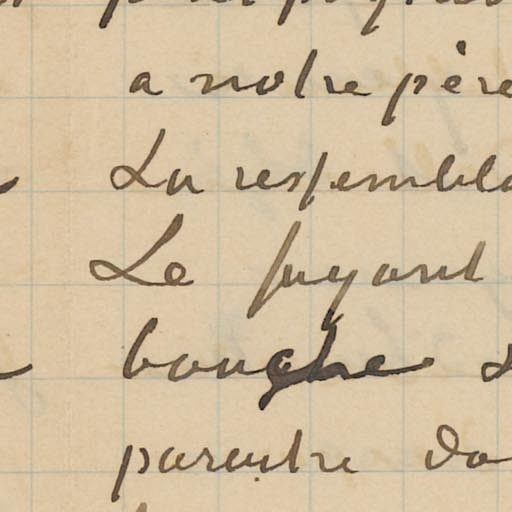 a notre père
La ressembla
Le fuyant
bouche
parentre da